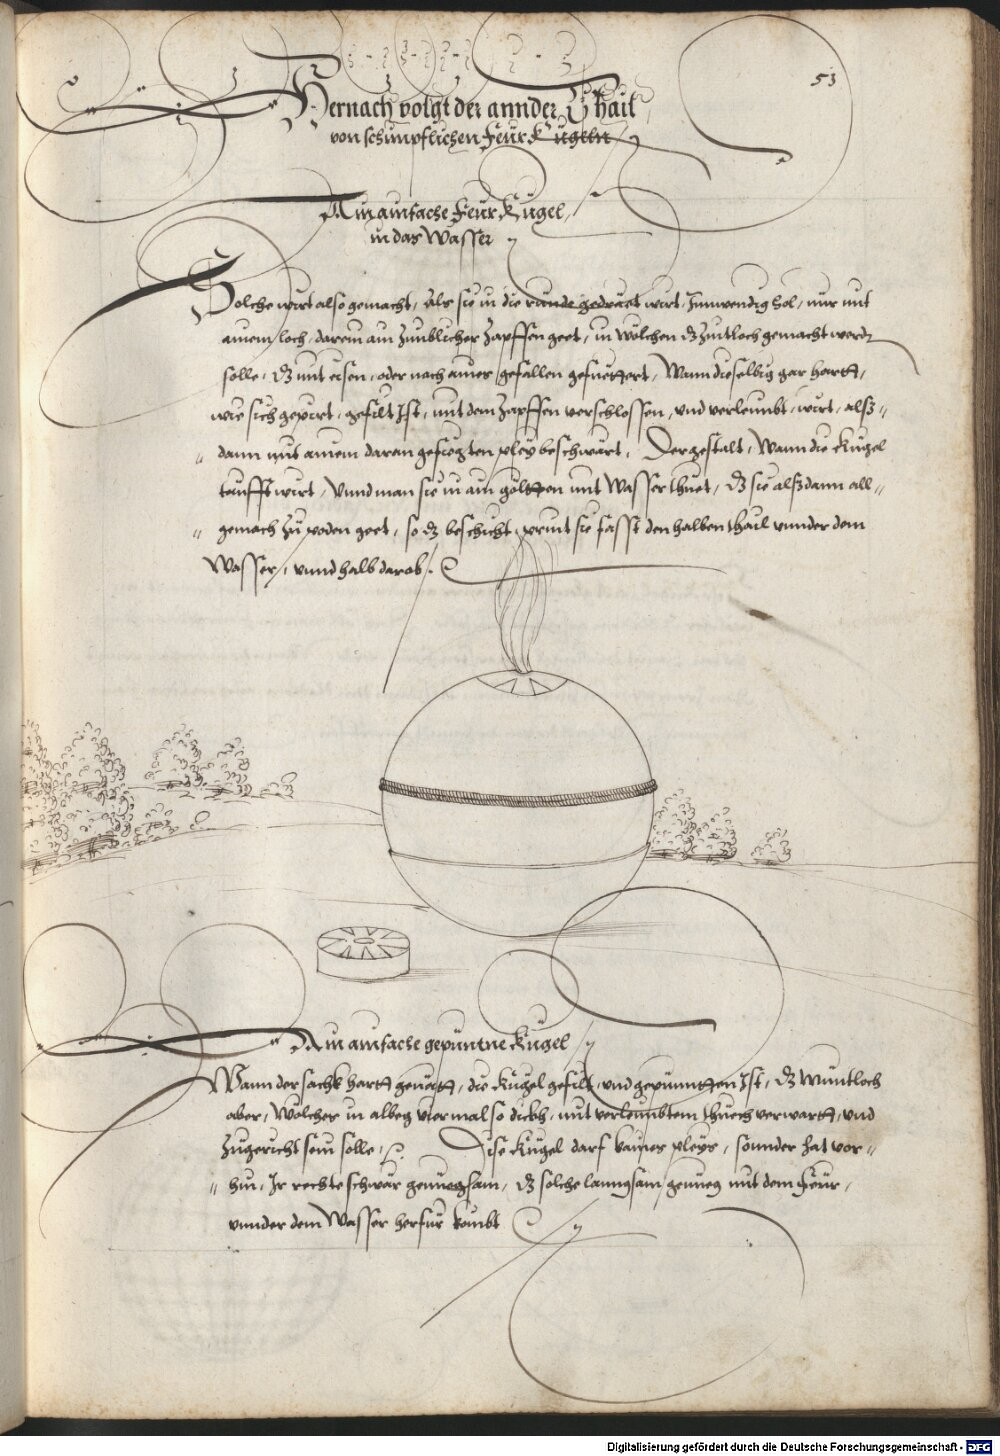 53
Hernach volgt der annder Thail
von schimpflichen FeurKugeln
Ain ainfache FeurKugel
in das Wasser
Solche wirt also gemacht, Als sie in die runde gedräet wirt, Innwendig hol, nur mit
ainem loch, darein ain Zimblicher Zapffen geet, in wölchen dz Zintloch gemacht werdn
solle, dz mit eisen, oder nach aines gefallen gefuettert, Wann dieselbig gar hartt,
wie sich gepürt, gefilt Ist, mit dem Zapffen verschlossen, vnd verleimbt, wirt, alß=
dann mit ainem daran gefuegten pley beschwärt, Dergestalt, Wann die Kugel
teufft wirt, Vnnd man sie in ain göltten mit Wasser thuet, dz sie alßdann all=
gemach Zu poden geet, so dz beschicht, print sie fasst den halben thail vnnder dem
Wasser, vnnd halb darob.
Ain ainfache gepuntne Kugel
Wann der sackh hartt geneett, die Kugel gefilt, vnd gepunntten Ist, dz
aber, Wölches in albeg viermal so dickh, mit verleimbtem thuech verwartt, vnd
Zugericht sein solle, Dise Kugel darf kaines pleys, sonnder hat vor=
hin, Ir rechte schwär genuegsam, dz solche lanngsam genueg mit dem Feur,
vnnder dem Wasser herfür kombt
Digitalisierung gefördert durch die Deutsche Forschungsgemeinschaft - DFG